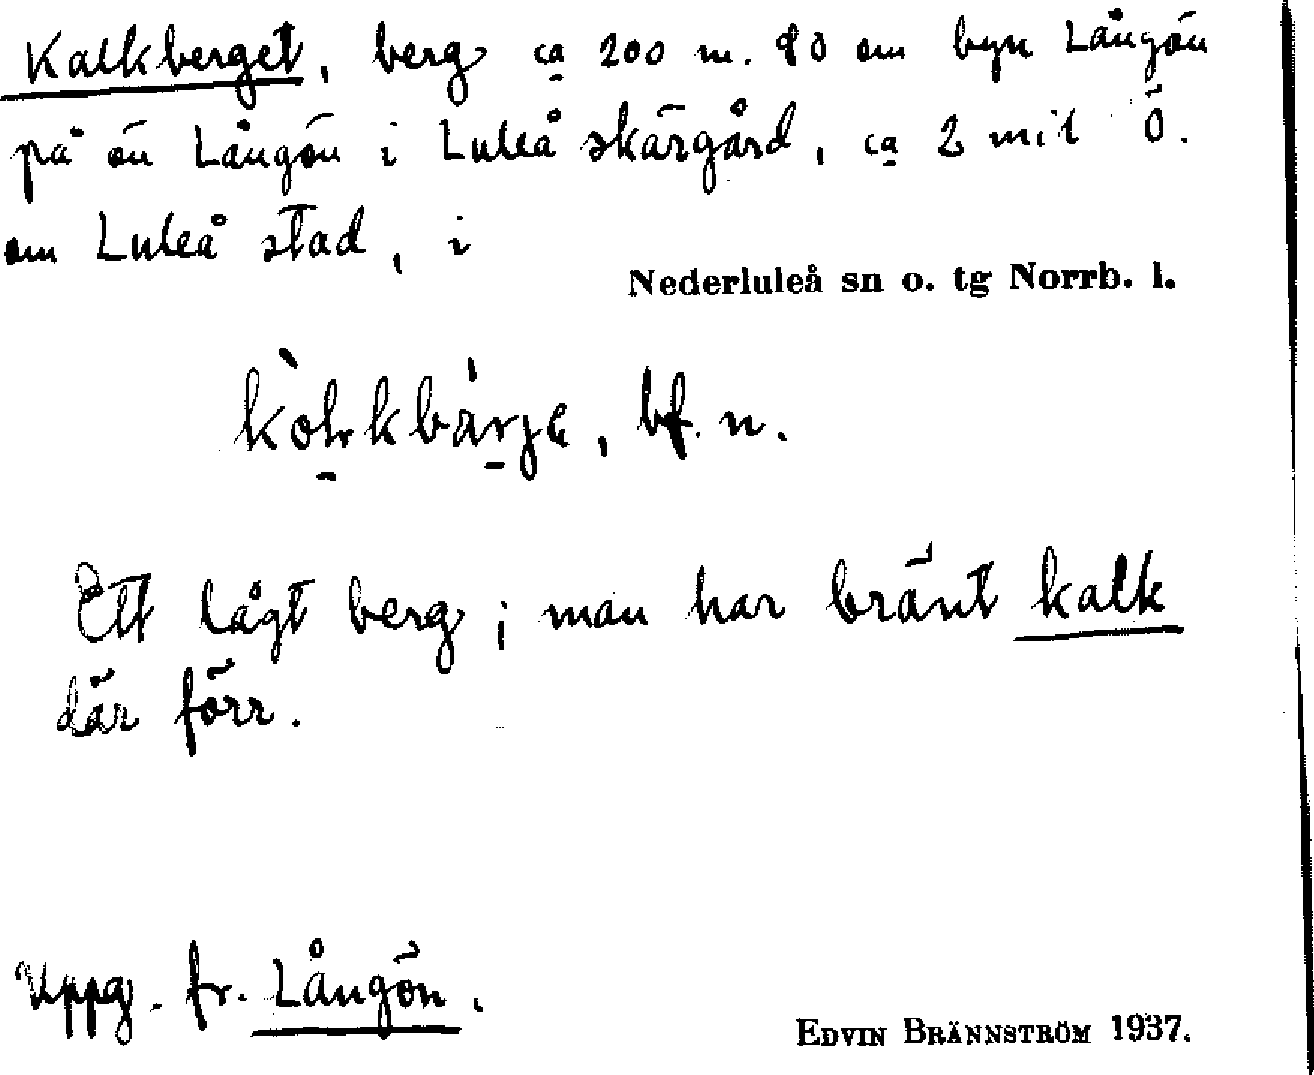 Kalkberget, berg ca 200 m. SO om byn Långön
på ön Långön i Luleå skärgård, ca 2 mil Ö.
om Luleå stad, i
Nederluleå sn o. tg Norrb. l.
bf. n.
Ett lågt berg; man har bränt kalk
där förr.
Uppg. fr. Långön.
EDVIN BRÄNNSTRÖM 1937.